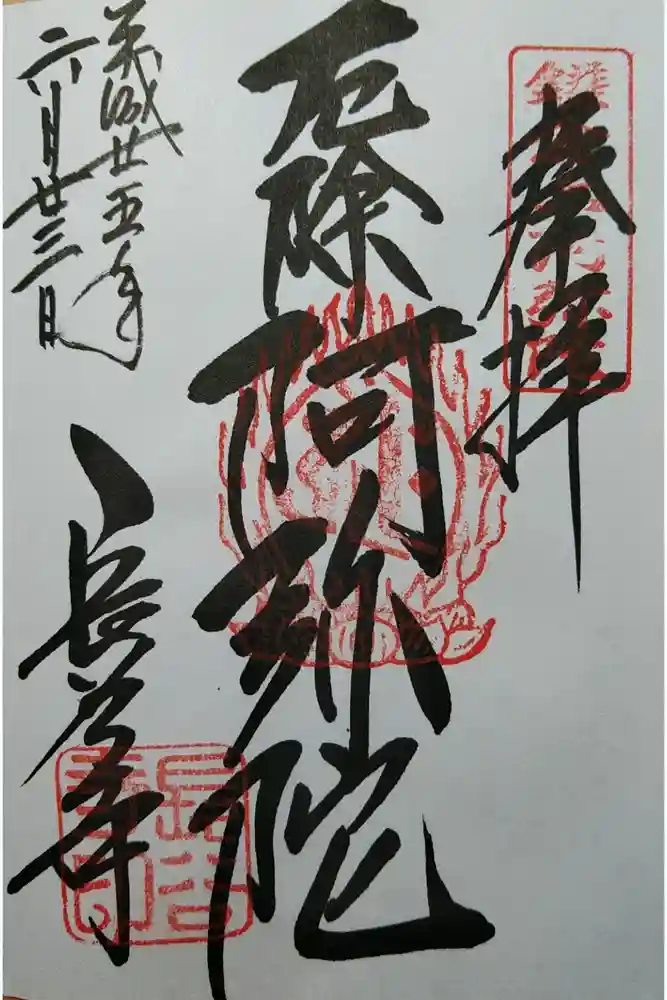 奉拝
厄除阿弥陀
平成廿五年
六月廿三日
長谷寺
長谷
寺印